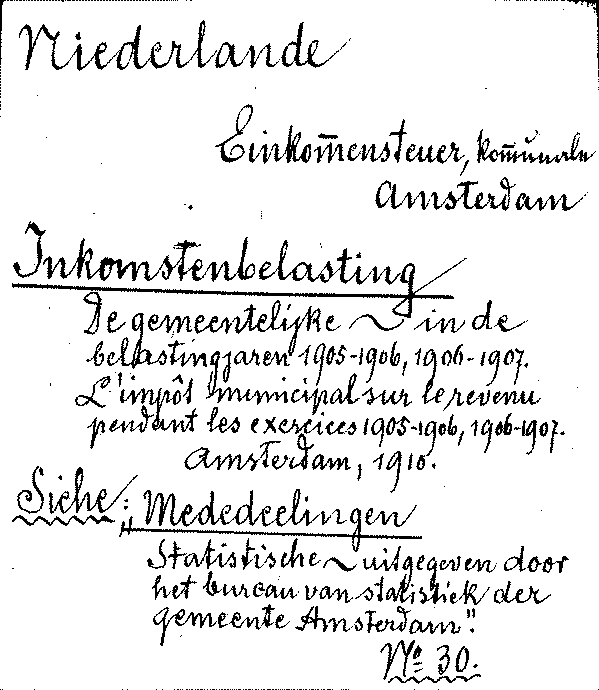 Niederlande
Einkom̅ensteuer, kom̅unale
Amsterdam
Inkomstenbelasting
De gemeentelijke ~ in de
belastingjaren 1905-1906, 1906-1907.
L'impôt municipal sur le revenu
pendant les exercices 1905-1906, 1906-1907.
Amsterdam, 1910.
Siehe: „Mededeelingen
Statistische ~ uitgegeven door
het bureau van statistiek der
gemeente Amsterdam".
No 30.